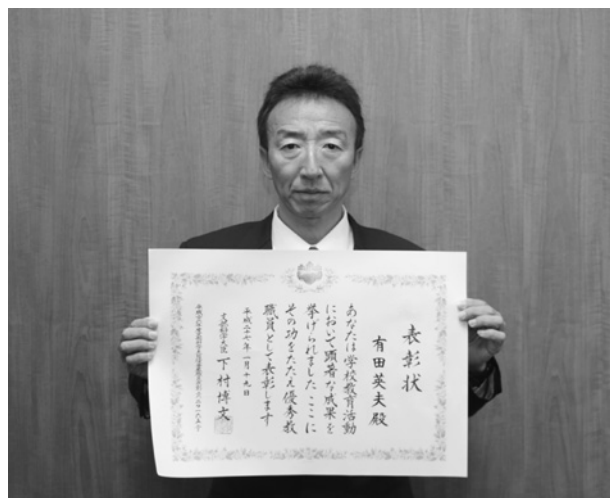 表彰状
有田英夫殿
あなたは学校教育活動
において顕著な成果を
挙げられました ここに
その功をたたえ優秀教
職員として表彰します
平成二十七年一月十九日
文部科学大臣 下村博文